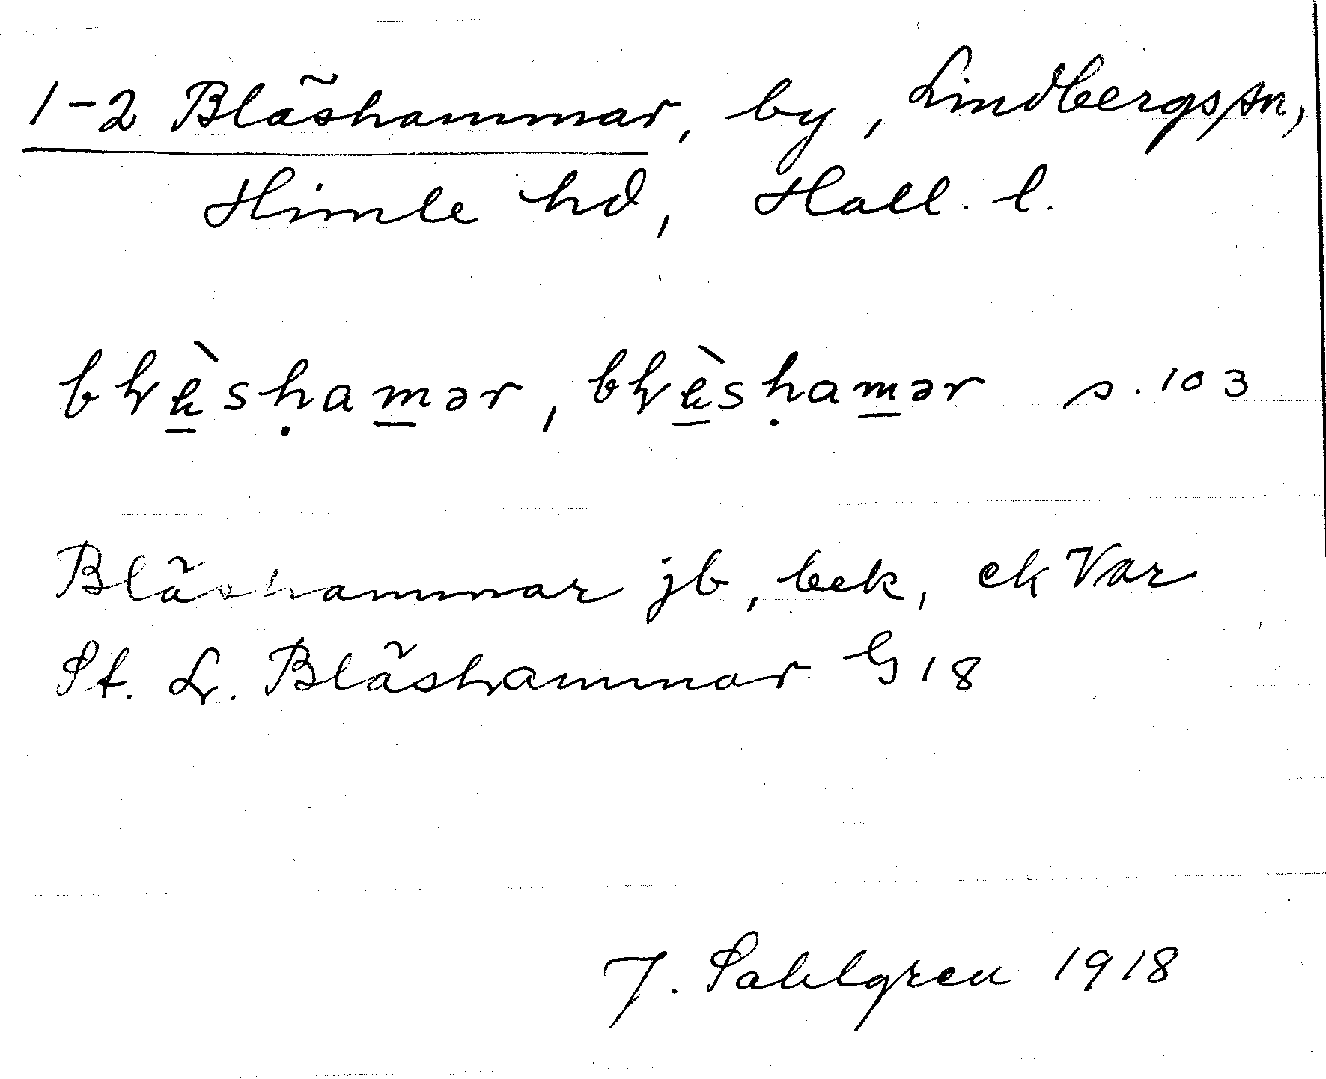 1-2 Bläshammar, by, Lindbergs sn,
Himle hd, Hall. l.
s. 103
Bläshammar jb, bek, ek Var
St. L. Bläshammar G 18
J. Sahlgren 1918